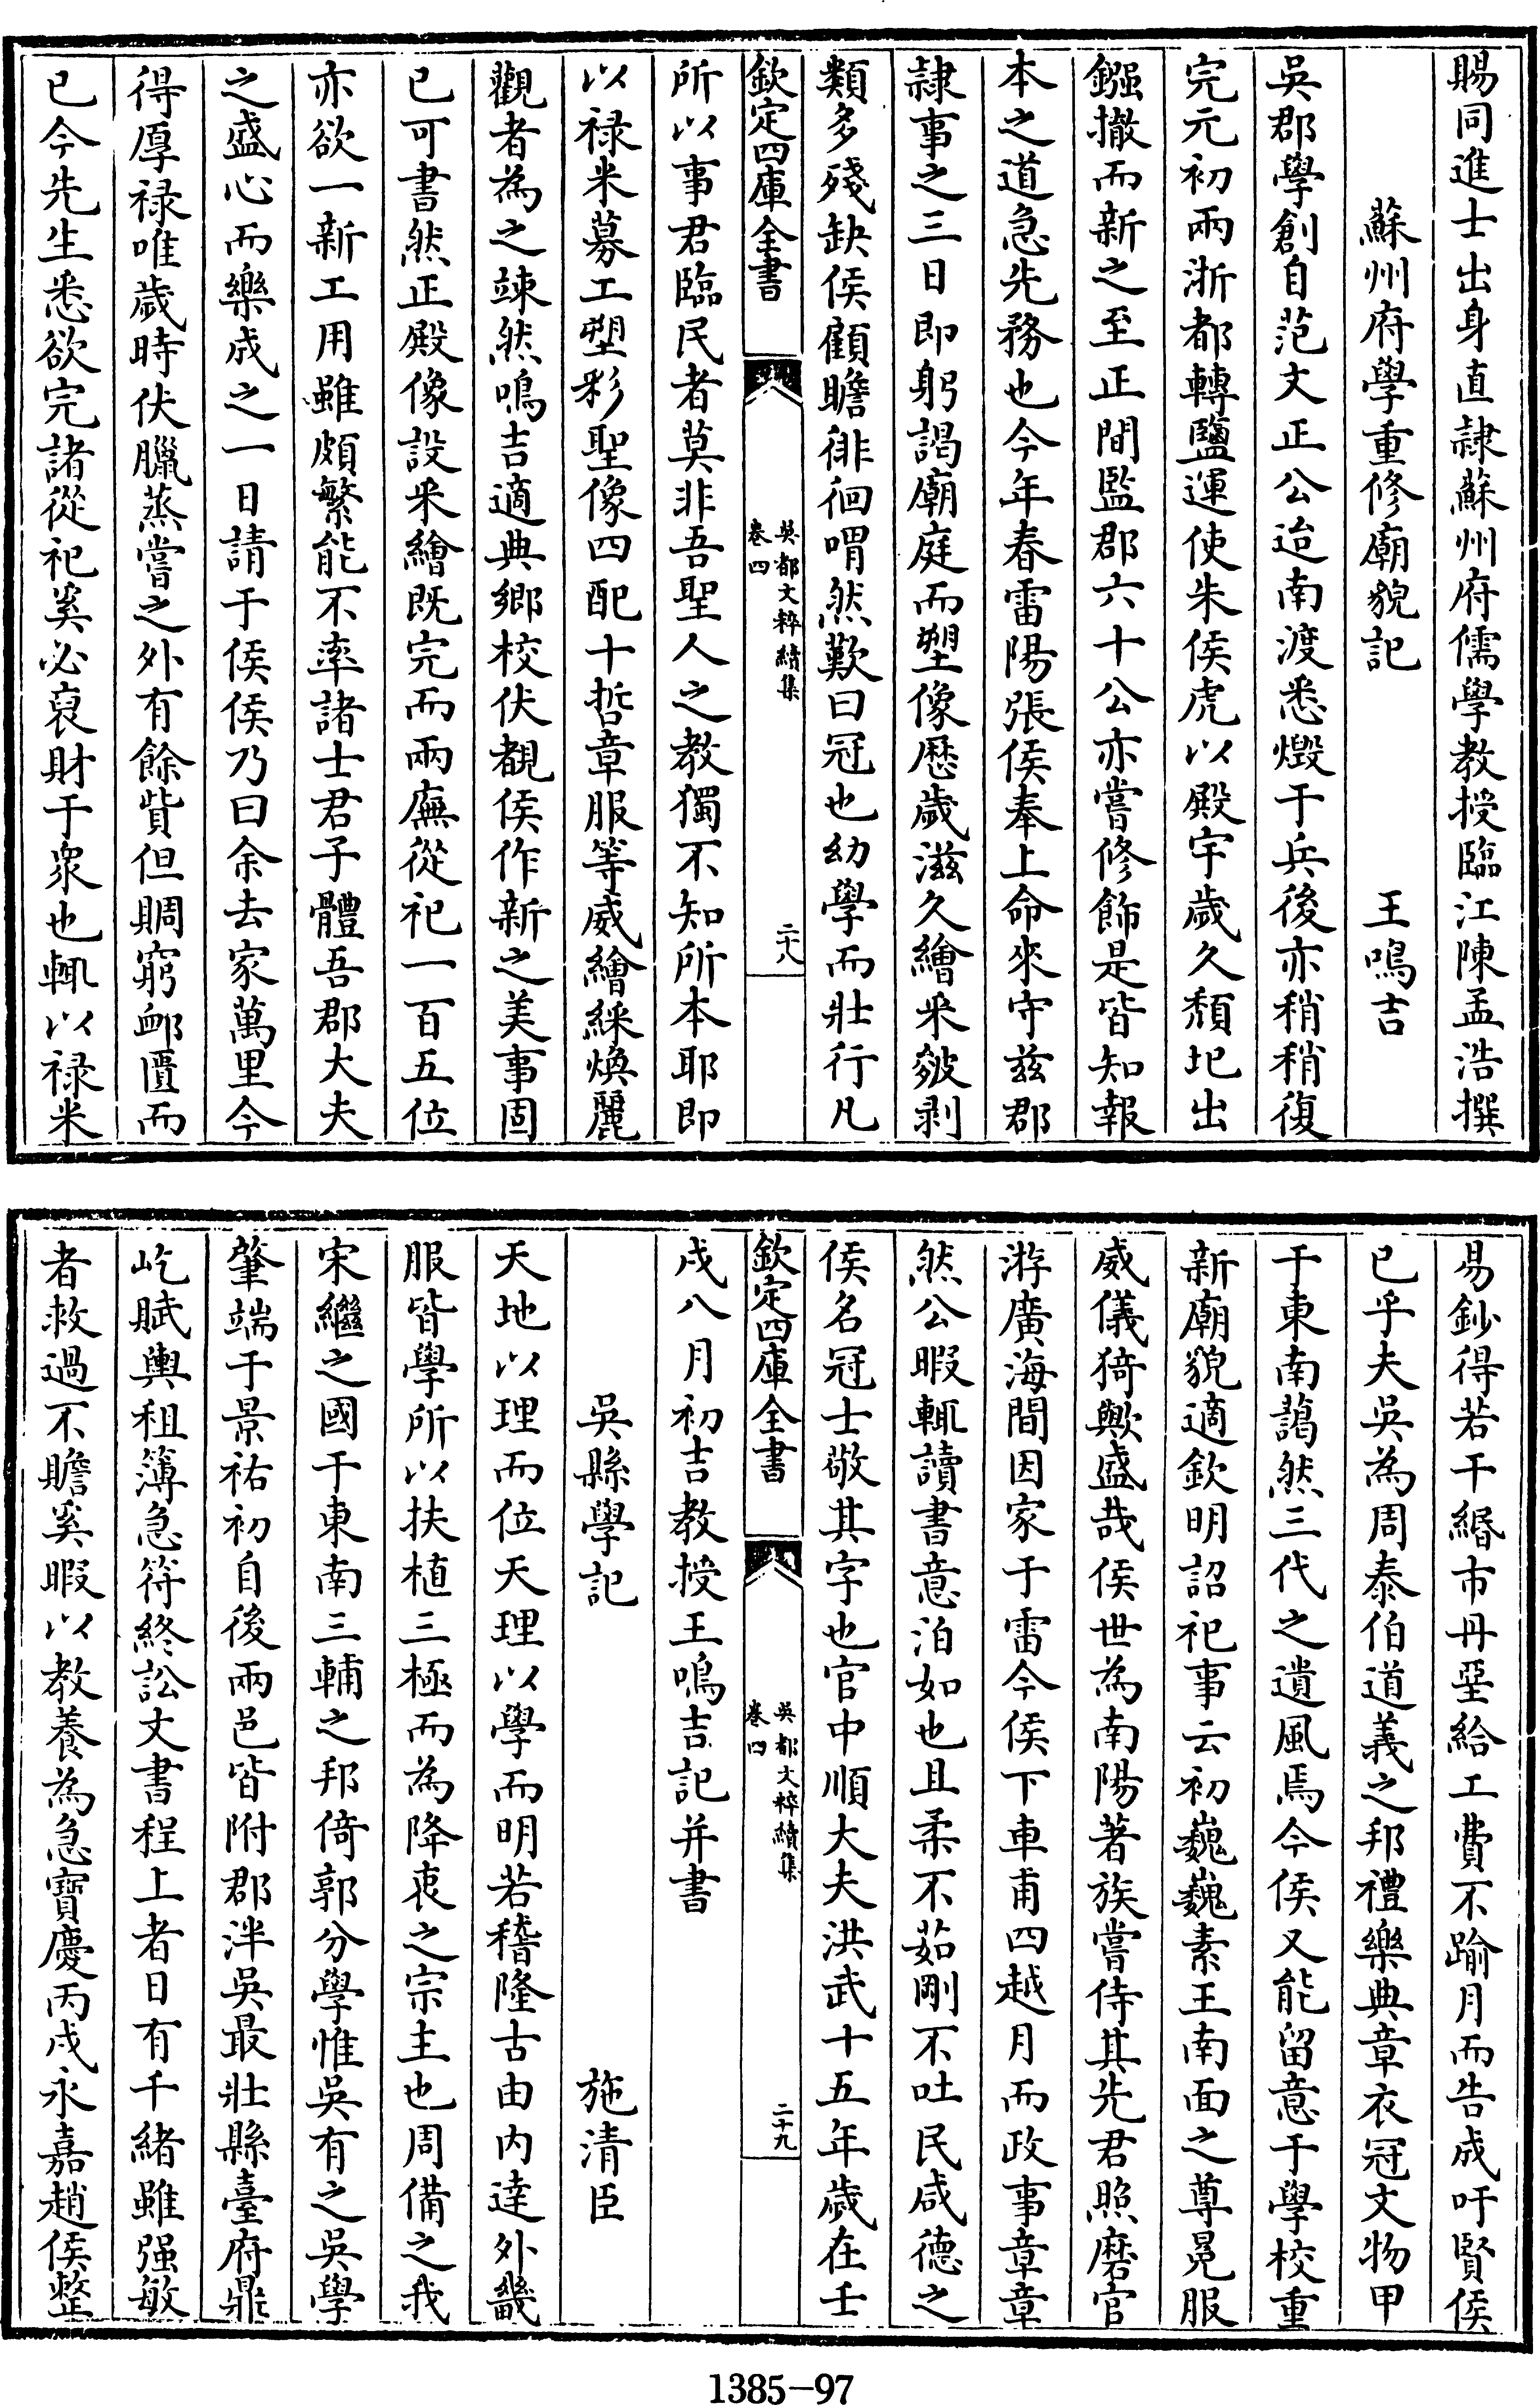 賜同進士出身直隷蘇州府儒學教授臨江陳孟浩撰
蘇州府學重修廟貌記 王鳴吉
吳郡學創自范文正公迨南渡悉燬于兵後亦稍稍復
完元初兩浙都轉鹽運使朱侯虎以殿宇歲久頹圯出
鏹撤而新之至正間監郡六十公亦嘗修飾是皆知報
本之道急先務也今年春雷陽張侯奉上命來守兹郡
隷事之三日即躬謁廟庭而塑像歷歲滋久繪采皴剥
類多殘缺侯顧瞻徘徊喟然歎曰冠也幼學而壯行凡
欽定四庫全書
吳都文粹續集
卷四
二十八
所以事君臨民者莫非吾聖人之教獨不知所本耶即
以禄米募工塑彩聖像四配十哲章服等威繪綵煥麗
觀者為之竦然鳴吉適典鄉校伏覩侯作新之美事固
已可書然正殿像設采繪既完而兩廡從祀一百五位
亦欲一新工用雖頗繁能不率諸士君子體吾郡大夫
之盛心而樂成之一日請于侯侯乃曰余去家萬里今
得厚禄唯歲時伏臘蒸嘗之外有餘貲但賙窮卹匱而
已今先生悉欲完諸從祀奚必裒財于衆也輒以禄米
易鈔得若干緡市丹堊給工費不踰月而告成吁賢侯
已乎夫吳為周泰伯道義之邦禮樂典章衣冠文物甲
于東南藹然三代之遺風焉今侯又能留意于學校重
新廟貌適欽明詔祀事云初巍巍素王南面之尊冕服
威儀猗歟盛哉侯世為南陽著族嘗侍其先君照磨官
游廣海間因家于雷今侯下車甫四越月而政事章章
然公暇輒讀書意泊如也且柔不茹剛不吐民咸德之
侯名冠士敬其字也官中順大夫洪武十五年歲在壬
欽定四庫全書
吳都文粹續集
卷四
二十九
戌八月初吉教授王鳴吉記并書
吳縣學記 施清臣
天地以理而位天理以學而明若稽隆古由内達外畿
服皆學所以扶植三極而為降衷之宗主也周備之我
宋繼之國于東南三輔之邦倚郭分學惟吳有之吳學
肇端于景祐初自後兩邑皆附郡泮吳最壯縣臺府鼎
屹賦輿租簿急符終訟文書程上者日有千緒雖强敏
者救過不贍奚暇以教養為急寶慶丙戌永嘉趙侯整
1385-97